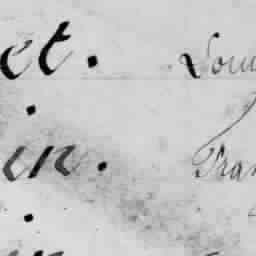 et. Lou
in. Fran